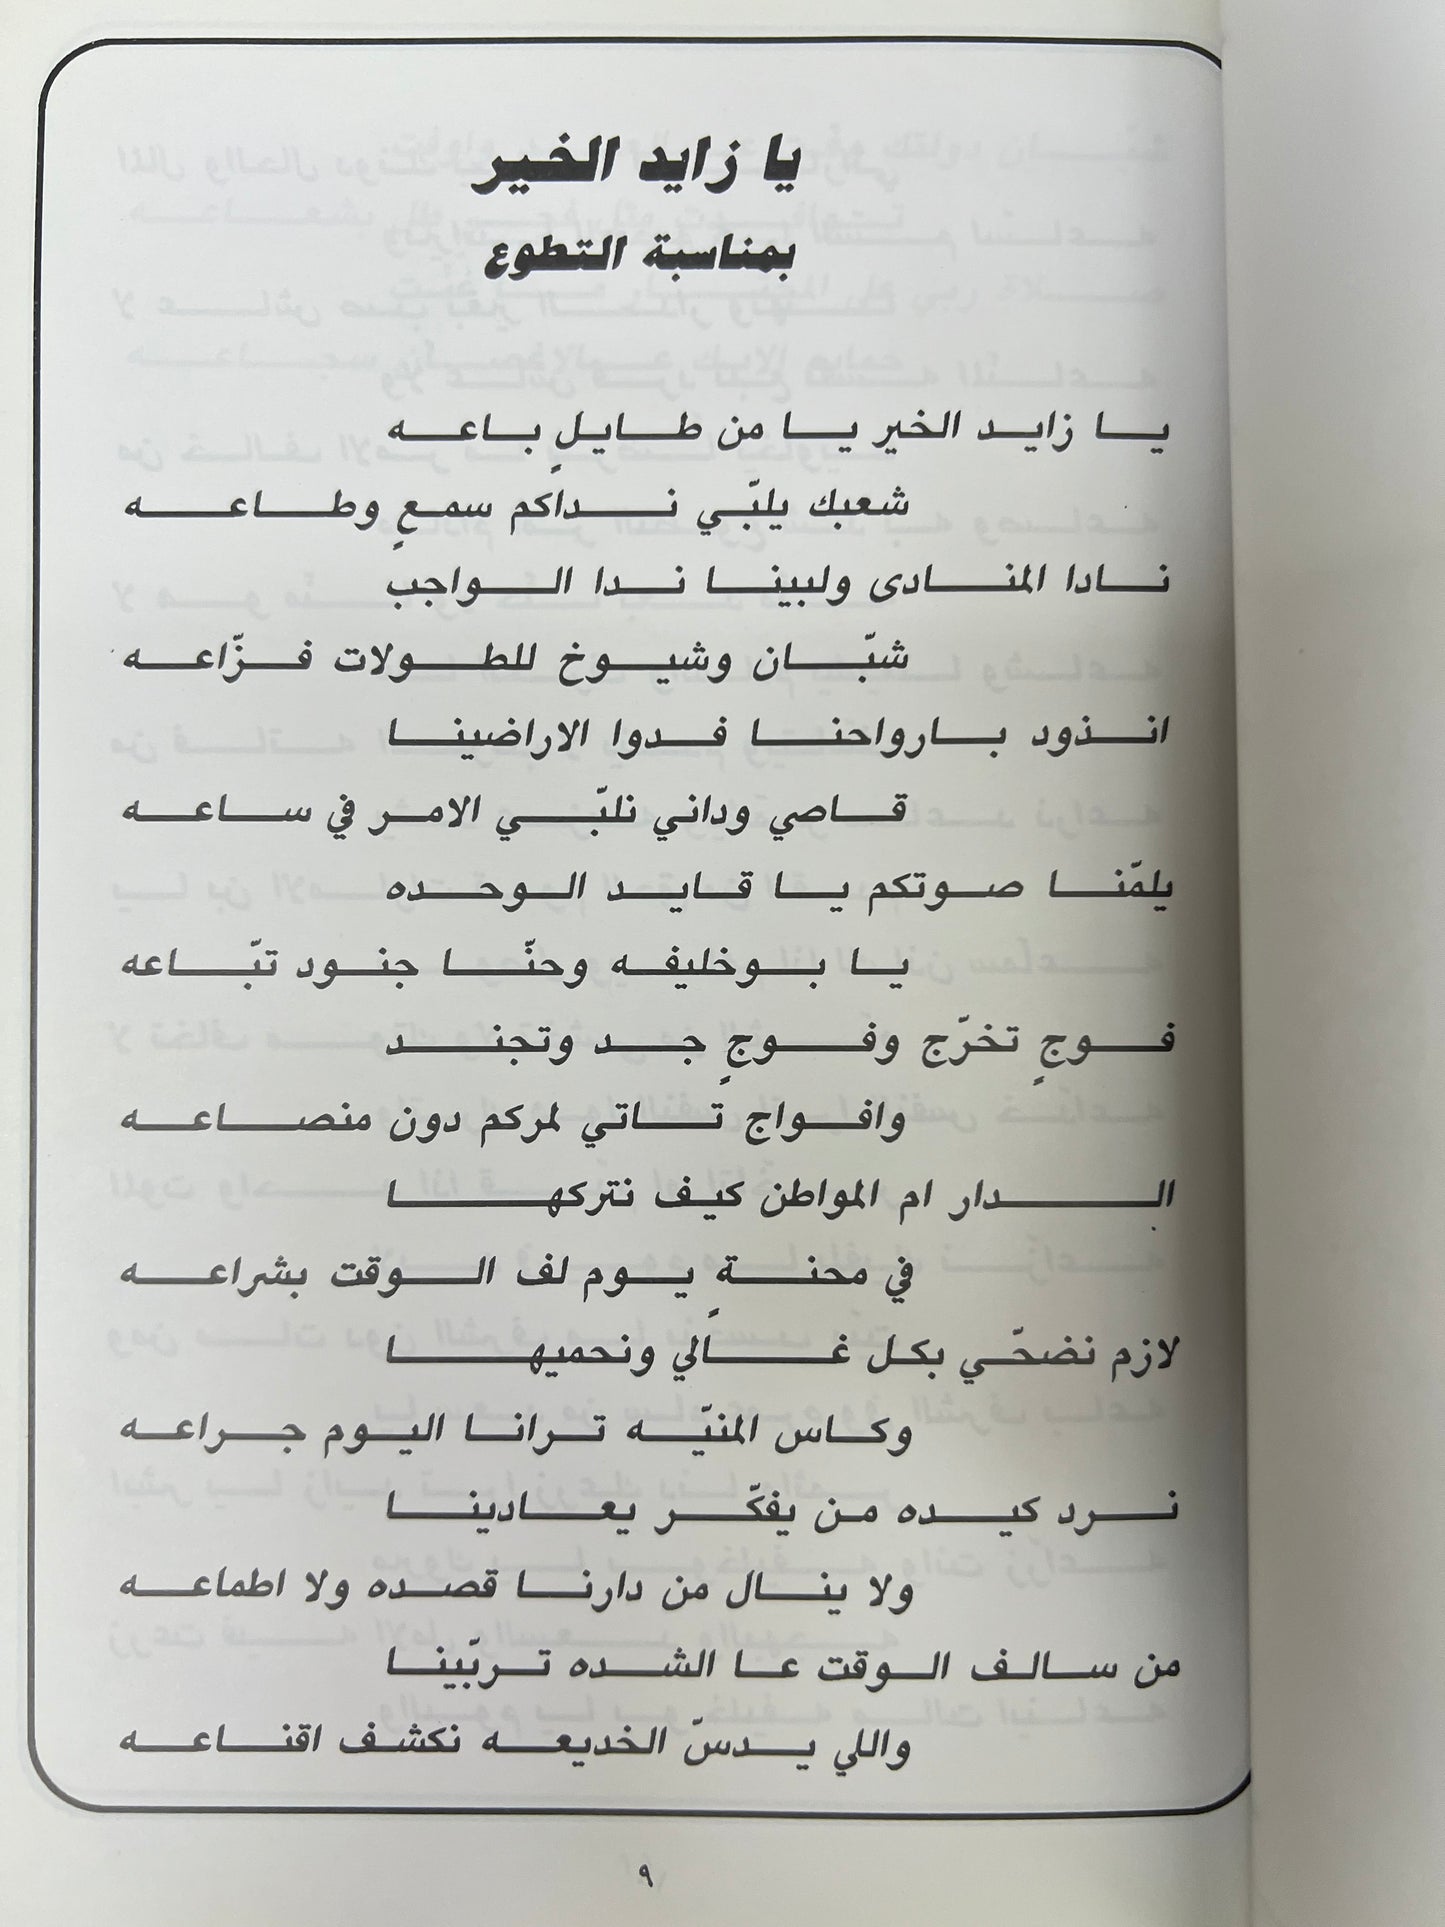 يا زايد الخير
بمناسبة التطوع
يا زايد الخير يا من طايلٍ باعه
شعبك يلبّي نداكم سمعٍ وطاعه
نادا المنادى ولبينا ندا الواجب
شبّان وشيوخ للطولات فزّاعه
انذود بارواحنا فدوا الاراضينا
قاصي وداني نلبّي الامر في ساعه
يلمّنا صوتكم يا قايد الوحده
يا بوخليفه وحنّا جنود تبّاعه
فوجٍ تخرّج وفوجٍ جد وتجند
وافواج تاتي لمركم دون منصاعه
الدار ام المواطن كيف نتركها
في محنةٍ يوم لف الوقت بشراعه
لازم نضحّي بكل غالي ونحميها
وكاس المنيّه ترانا اليوم جراعه
نرد كيده من يفكّر يعادينا
ولا ينال من دارنا قصده ولا اطماعه
من سالف الوقت عا الشده تربّينا
واللي يدسّ الخديعه نكشف اقناعه
٩